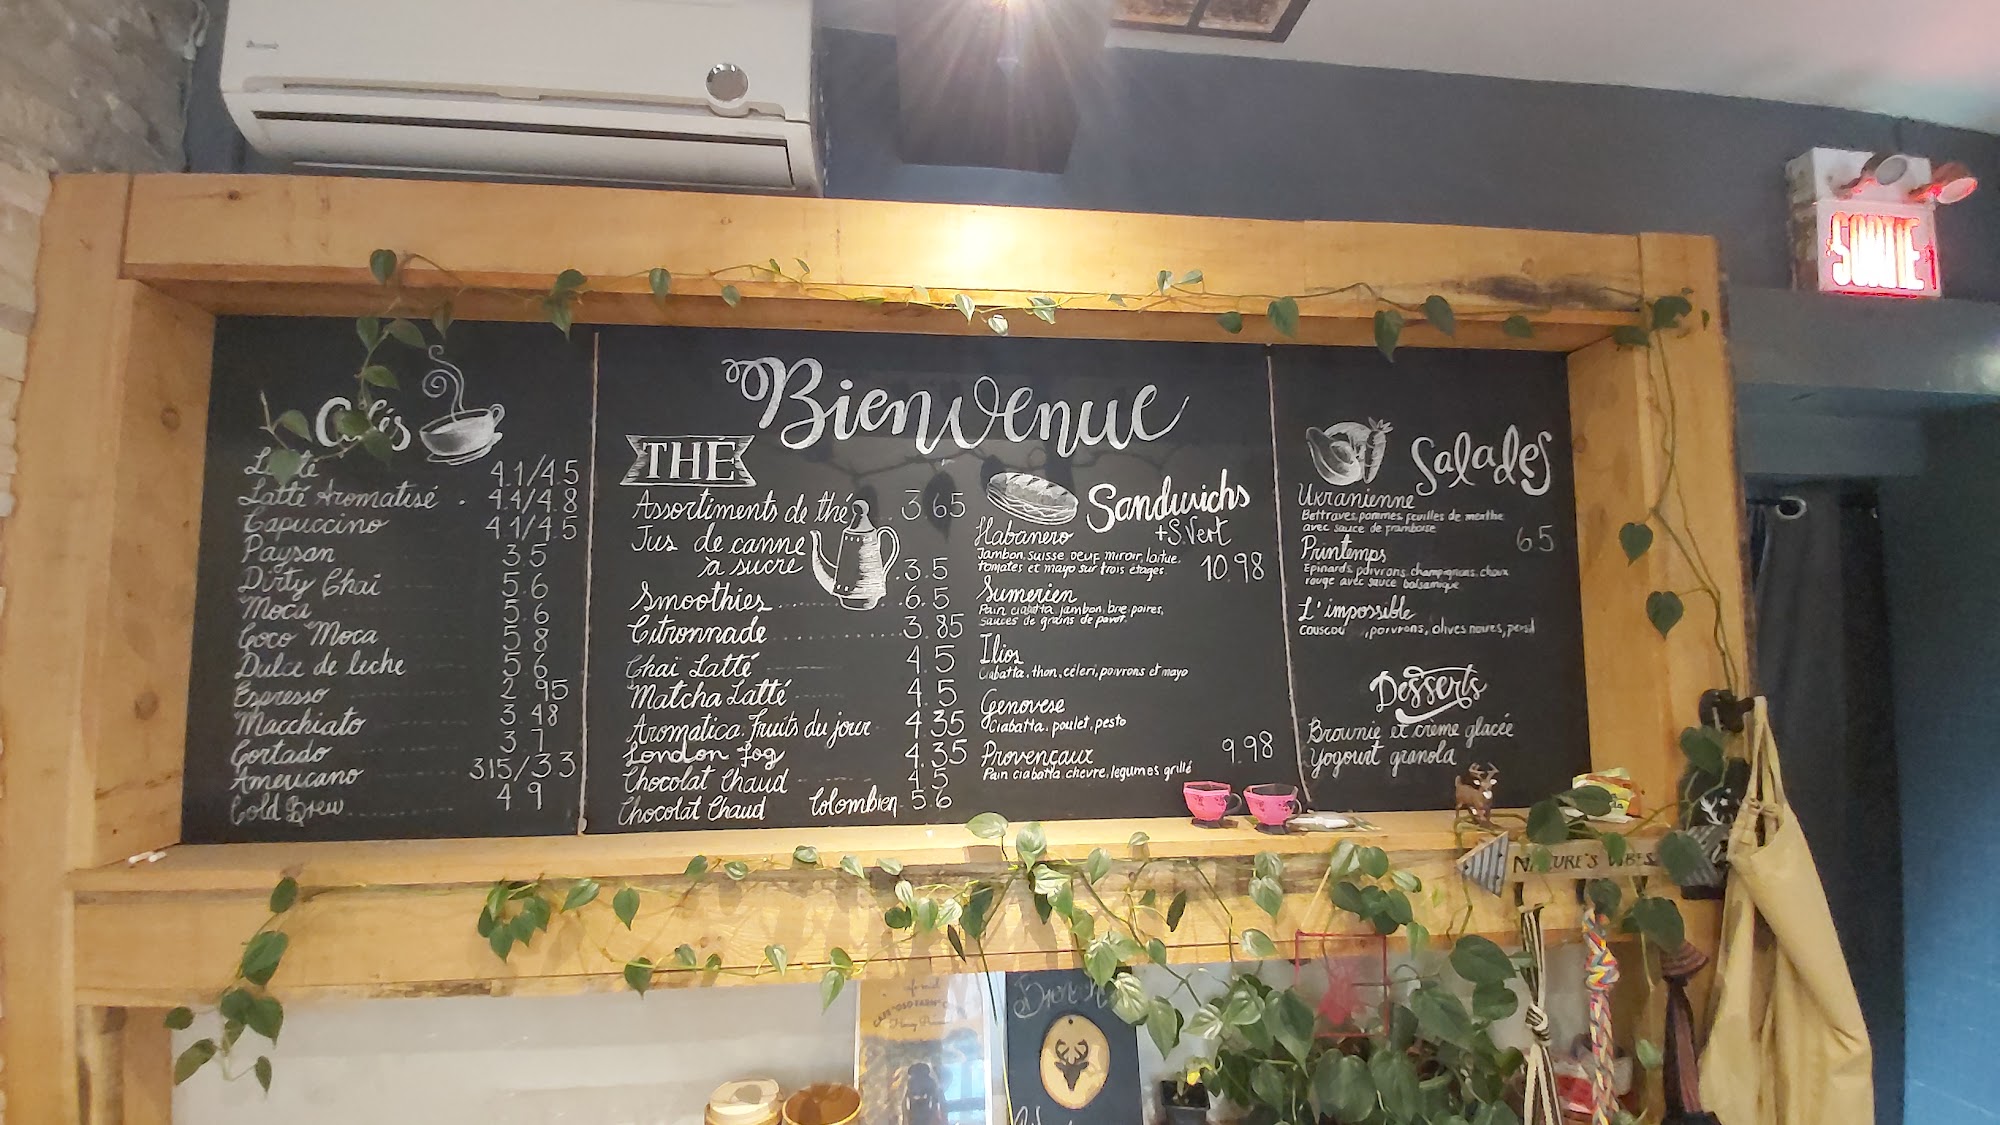 SORTIE
Bienvenue
Cafés
Latté 4.1/4.5
Latté Aromatisé . 4.4/4.8
Capuccino 4.1/4.5
Paysan 3.5
Dirty Chai 5.6
Moca 5.6
Coco Moca 5.8
Dulce de leche 5.6
Espresso 2.95
Macchiato 3.48
Cortado 3.7
Americano 315/33
Cold Brew 4.9
THÉ
Assortiments de thé 3.65
Jus de canne
à sucre 3.5
Smoothies 6.5
Citronnade 3.85
Chaï Latté 4.5
Matcha Latté 4.5
Aromatica. Fruits du jour 4.35
London Fog 4.35
Chocolat Chaud 4.5
Chocolat Chaud Colombien 5.6
Sandwichs
+S.Vert
Habanero
Jambon, suisse, oeuf miroir, laitue,
tomates et mayo sur trois étages. 10.98
Sumerien
Pain ciabatta, jambon, brie, poires,
Sauces de grains de pavot.
Ilios
Ciabatta, thon, céleri, poivrons et mayo
Genovese
Ciabatta, poulet, pesto
Provençaux 9.98
Pain ciabatta, chevre, legumes grillé
Salades
Ukranienne
Bettraves, pommes, feuilles de menthe
avec sauce de framboise 6.5
Printemps
Epinards, poivrons, champignons, choux
rouge avec sauce balsamique
L'impossible
couscou , poivrons, olives noires, persil
Desserts
Brownie et crème glacée
Yogourt granola
NATURE'S VIBES